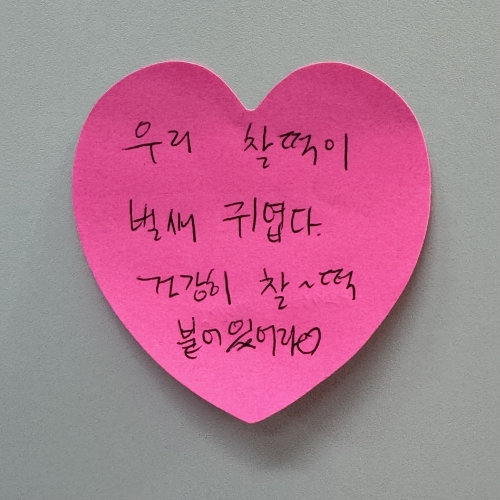 우리 찰떡이
벌써 귀엽다.
건강히 찰~떡
붙어있어라♡